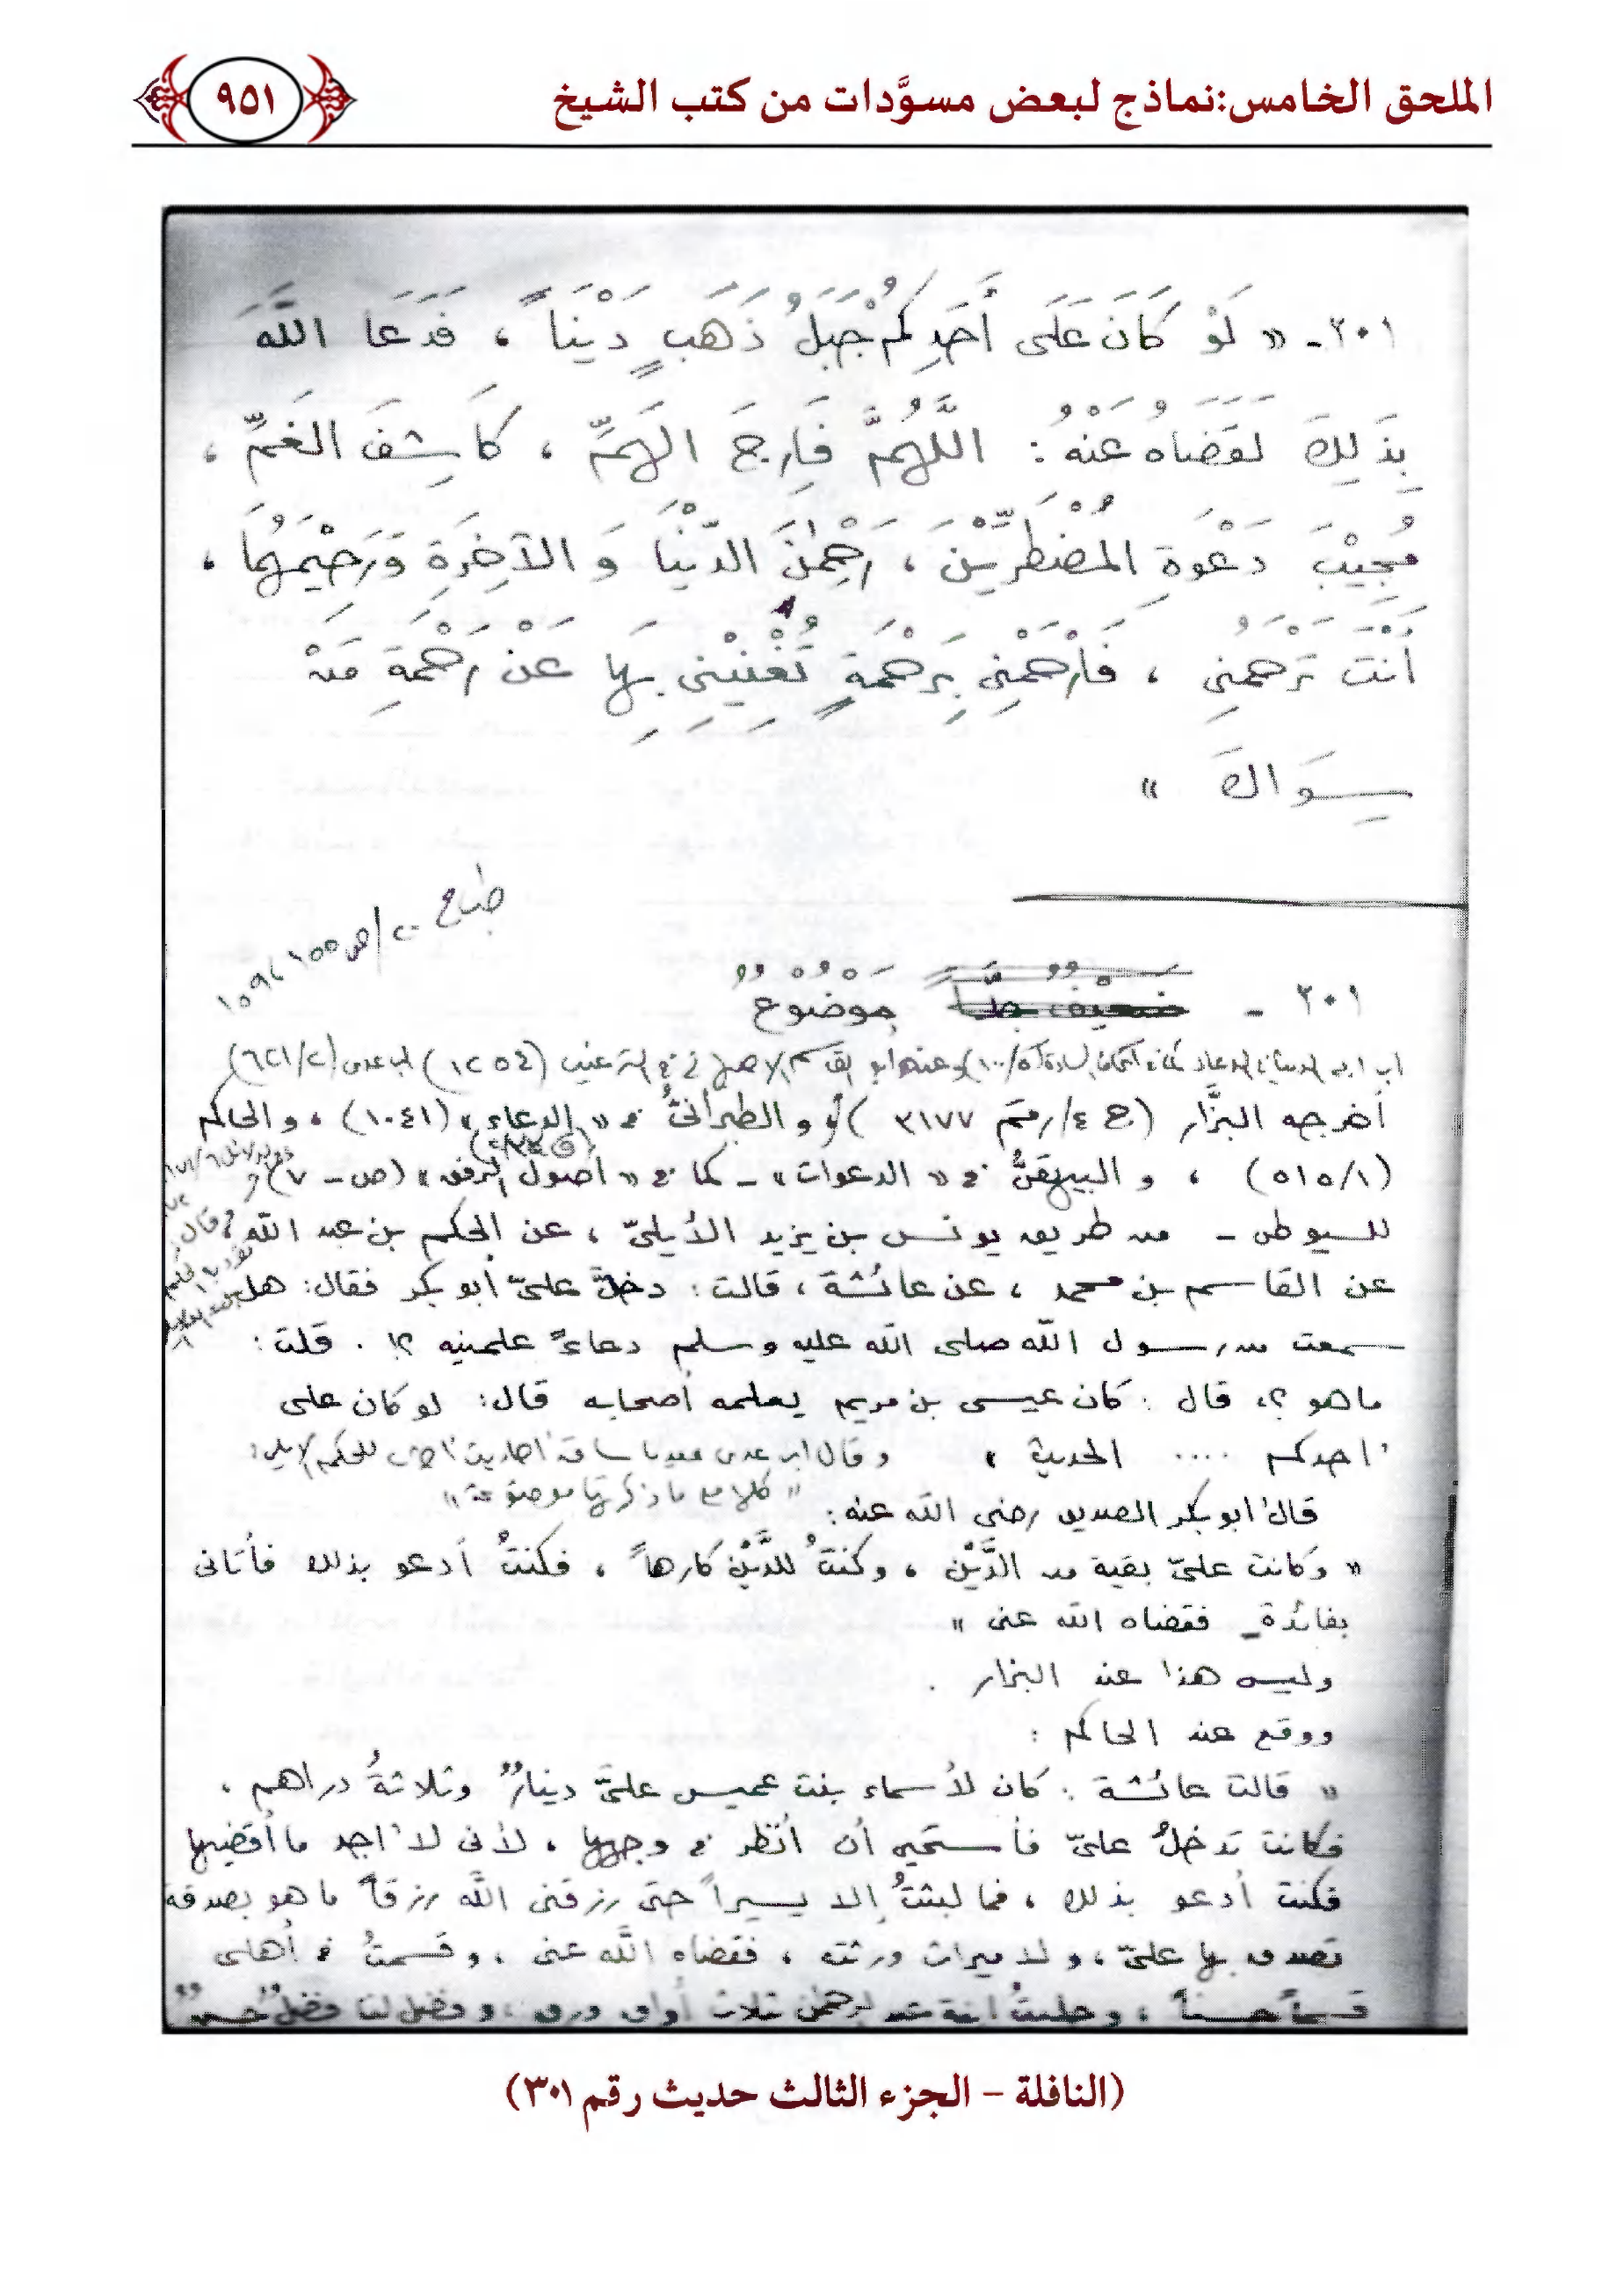 الملحق الخامس: نماذج لبعض مسوَّدات من كتب الشيخ
٩٥١
٣٠١- « لَوْ كَانَ عَلَى أَحَدِكُمْ جَبَلُ ذَهَبٍ دَيْنَاً ، فَدَعَا اللَّهَ
بِذَلِكَ لَقَضَاهُ عَنْهُ : اللَّهُمَّ فَارِجَ الهَمِّ ، كَاشِفَ الغَمِّ ،
مُجِيْبَ دَعْوَةِ المُضْطَرِّيْنَ ، رَحْمٰنَ الدُّنْيَا وَ الآخِرَةِ وَرَحِيْمَهُمَا ،
أَنْتَ تَرْحَمُنِي ، فَارْحَمْنِي بِرَحْمَةٍ تُغْنِيْنِي بِهَا عَنْ رَحْمَةِ مَنْ
سِوَاكَ »
٣٠١ - ضَعِيْفٌ جِدَّاً مَوْضُوْعٌ
أخرجه البزَّار (ج ٤/ رقم ٣١٧٧) و الطبرانيُّ في « الدعاء » (١٠٤١) ، والحاكم
(١/٥١٥) ، و البيهقيُّ في « الدعوات » - كما في « أصول الرفق » (ص - ٧)
للسيوطي - من طريق يونس بن يزيد الأيليّ ، عن الحكم بن عبد الله ،
عن القاسم بن محمد ، عن عائشة ، قالت : دخل عليّ أبو بكر فقال : هل
سمعت من رسول الله صلى الله عليه وسلم دعاءً علمنيه ؟! . قلت :
ما هو ؟، قال : كان عيسى بن مريم يعلمه أصحابه قال : لو كان على
أحدكم .... الحديث » وقال ابن عدي بعدما ساق أحاديث أخرى للحكم الأيلي :
« كلها مع ما ذكرتها موضوعة »
قال أبو بكر الصديق رضي الله عنه :
« وكانت عليّ بقية من الدَّيْن ، وكنتُ للدَّيْن كارهاً ، فكنتُ أدعو بذلك فأتاني
بفائدة - فقضاه الله عني »
وليس هذا عند البزار .
ووقع عند الحاكم :
« قالت عائشة : كان لأسماء بنت عميس عليَّ دينارٌ وثلاثةُ دراهم ،
فكانت تدخلُ عليّ فأستحيي أن أنظر في وجهها ، لأني لا أجد ما أقضيها
فكنت أدعو بذلك ، فما لبثتُ إلا يسيراً حتى رزقني اللَّه رزقاً ما هو بصدقة
تصدق بها عليّ ، ولا ميراث ورثته ، فقضاه اللَّه عني ، وقسمتُ في أهلي
قسماً حسناً ، وحليتُ ابنة عبد الرحمٰن ثلاث أواق ورق ، وفضل لنا فضلٌ حسنٌ
(النافلة - الجزء الثالث حديث رقم ٣٠١)